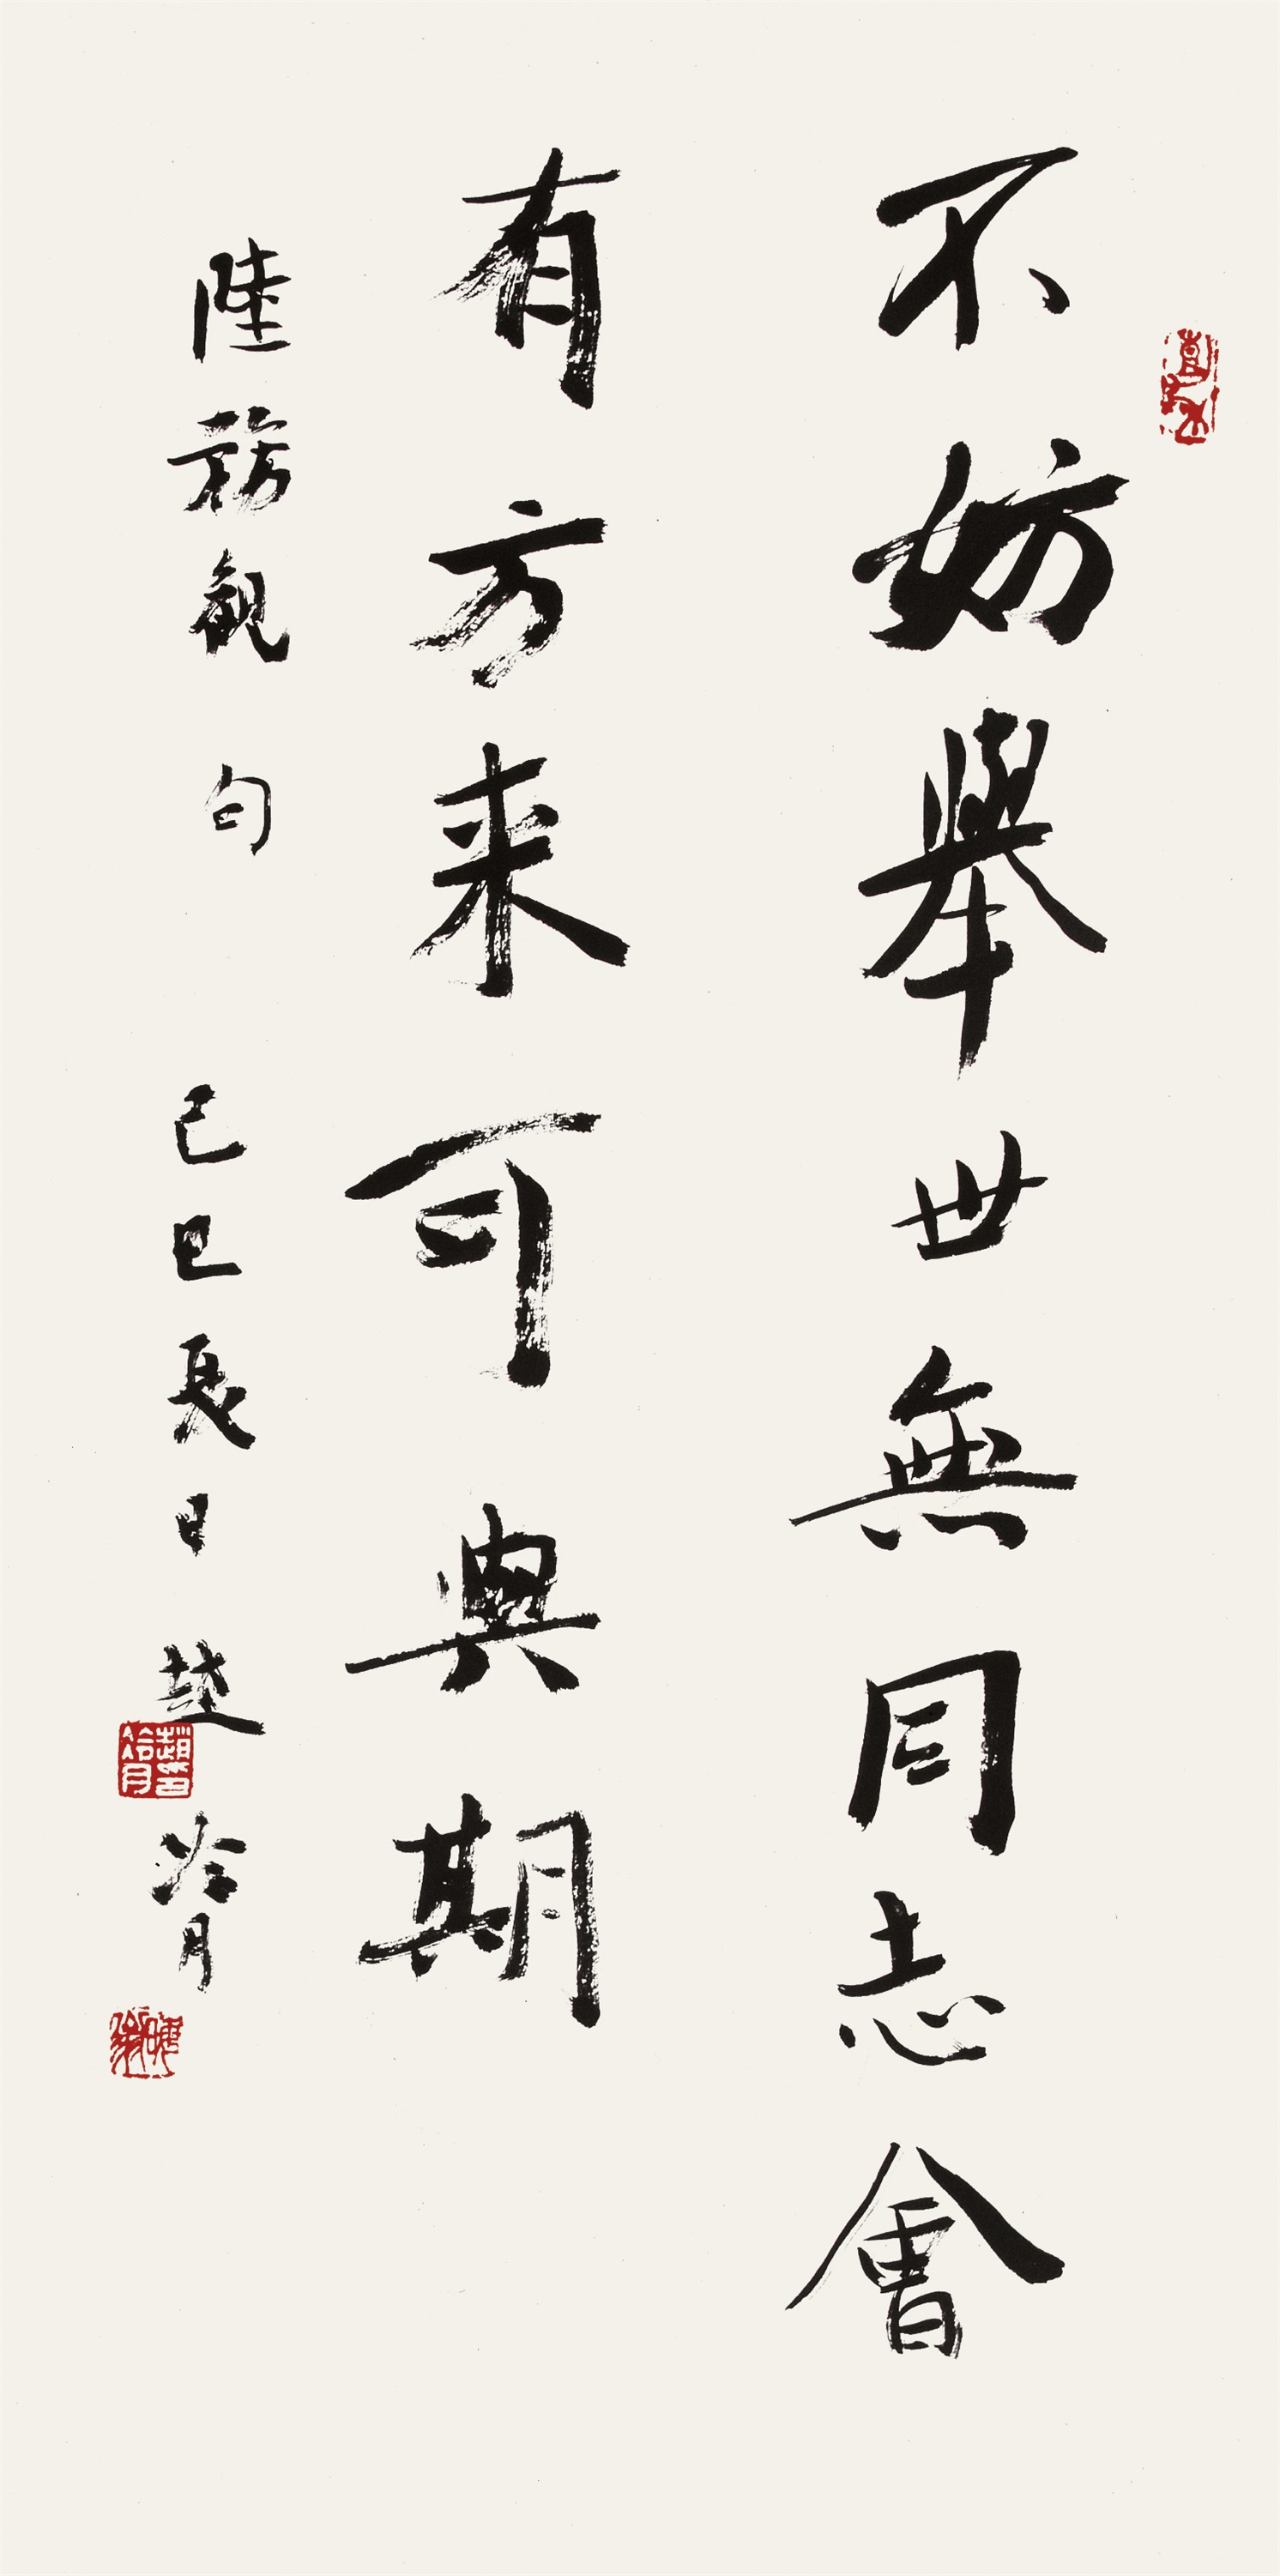 不妨舉世無同志會
有方来可與期
陸務觀句 己巳夏日 趙冷月
趙印冷月